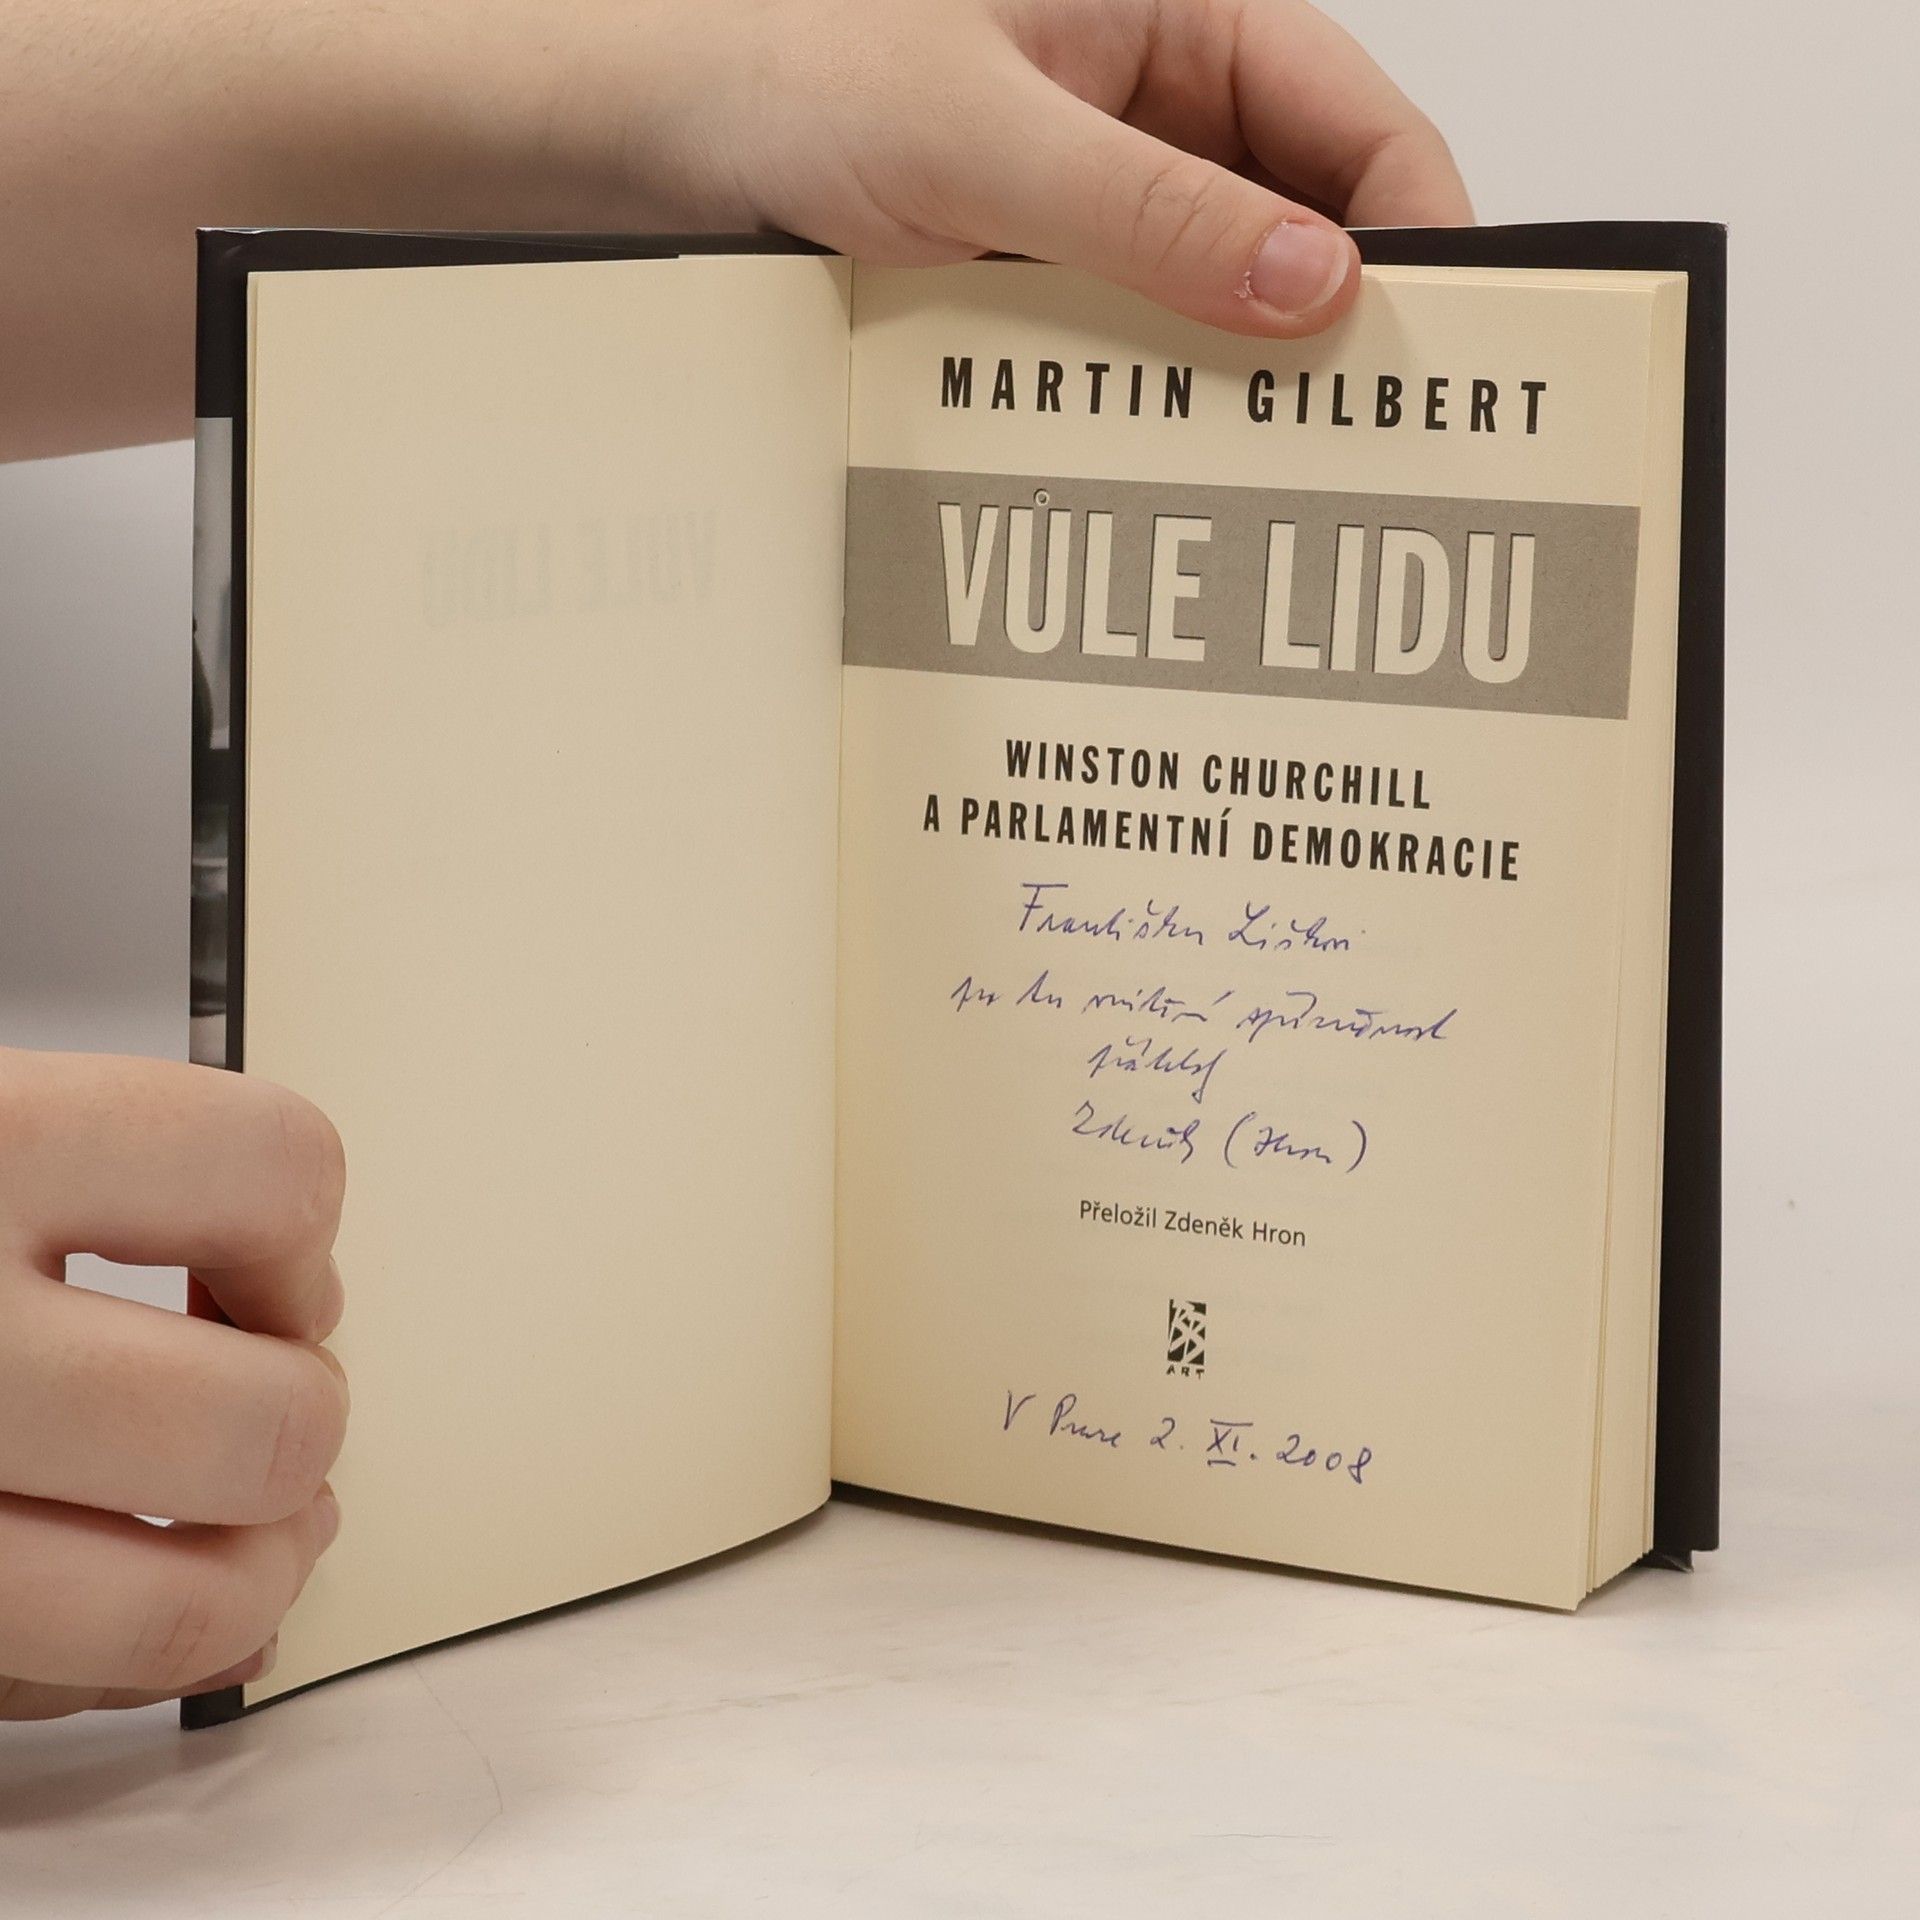 MARTIN GILBERT
VŮLE LIDU
WINSTON CHURCHILL
A PARLAMENTNÍ DEMOKRACIE
Františku Liškovi
po tu vnitřní spřízněnost
přátelsky
Zdeněk (Hron)
Přeložil Zdeněk Hron
BB
ART
V Praze 2. XI. 2008